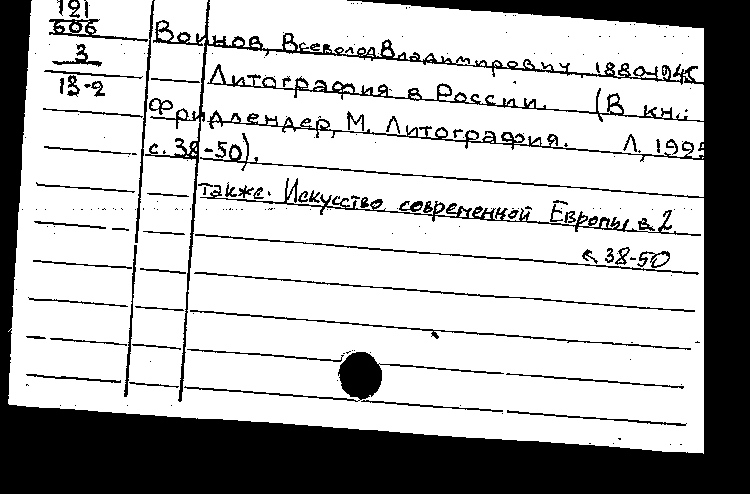 121
606
3
13-2
Воинов, Всеволод Владимирович, 1880-1945
Литография в России. (В кн.:
Фридлендер, М. Литография. Л., 1925
с. 38-50).
также. Искусство современной Европы, в. 2.
с. 38-50